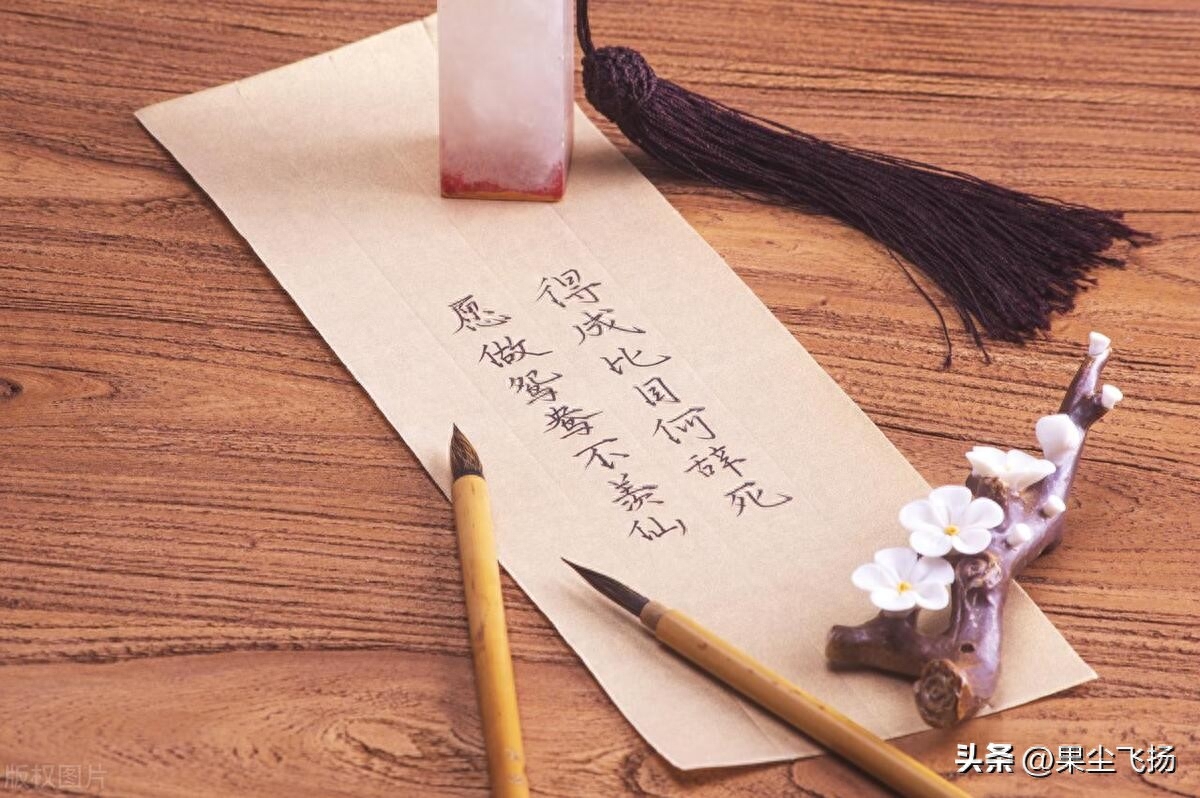 得成比目何辞死
愿做鸳鸯不羡仙
版权图片
头条 @果尘飞扬